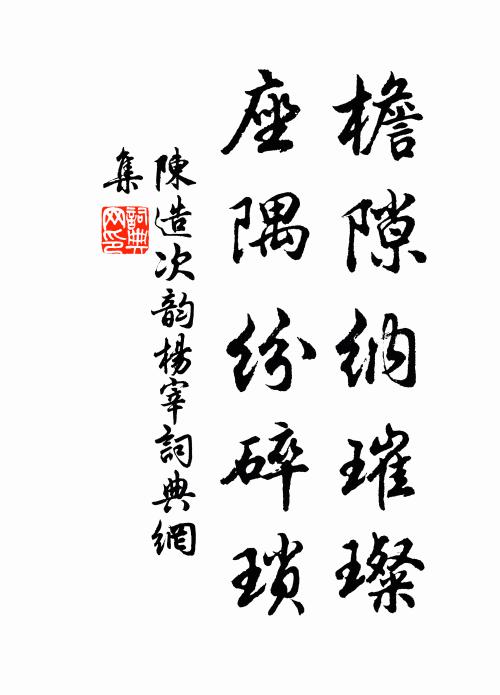 檐隙納璀璨
座隅紛碎瑣
陳造次韵楊宰詞典網
集
詞典网印